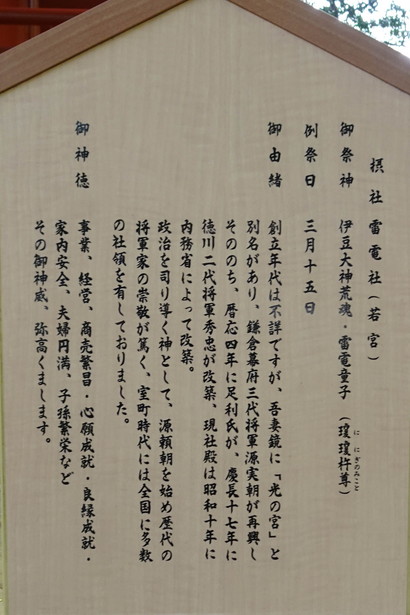 摂社 雷電社（若宮）
御祭神 伊豆大神荒魂・雷電童子（瓊瓊杵尊）
に にぎのみこと
例祭日 三月十五日
御由緒 創立年代は不詳ですが、吾妻鏡に「光の宮」と
別名があり、鎌倉幕府三代将軍源実朝が再興し
そののち、暦応四年に足利氏が、慶長十七年に
徳川二代将軍秀忠が改築、現社殿は昭和十年に
内務省によって改築。
政治を司り導く神として、源頼朝を始め歴代の
将軍家の崇敬が篤く、室町時代には全国に多数
の社領を有しておりました。
御神徳 事業、経営、商売繁昌・心願成就・良縁成就・
家内安全、夫婦円満、子孫繁栄など
その御神威、弥高くまします。